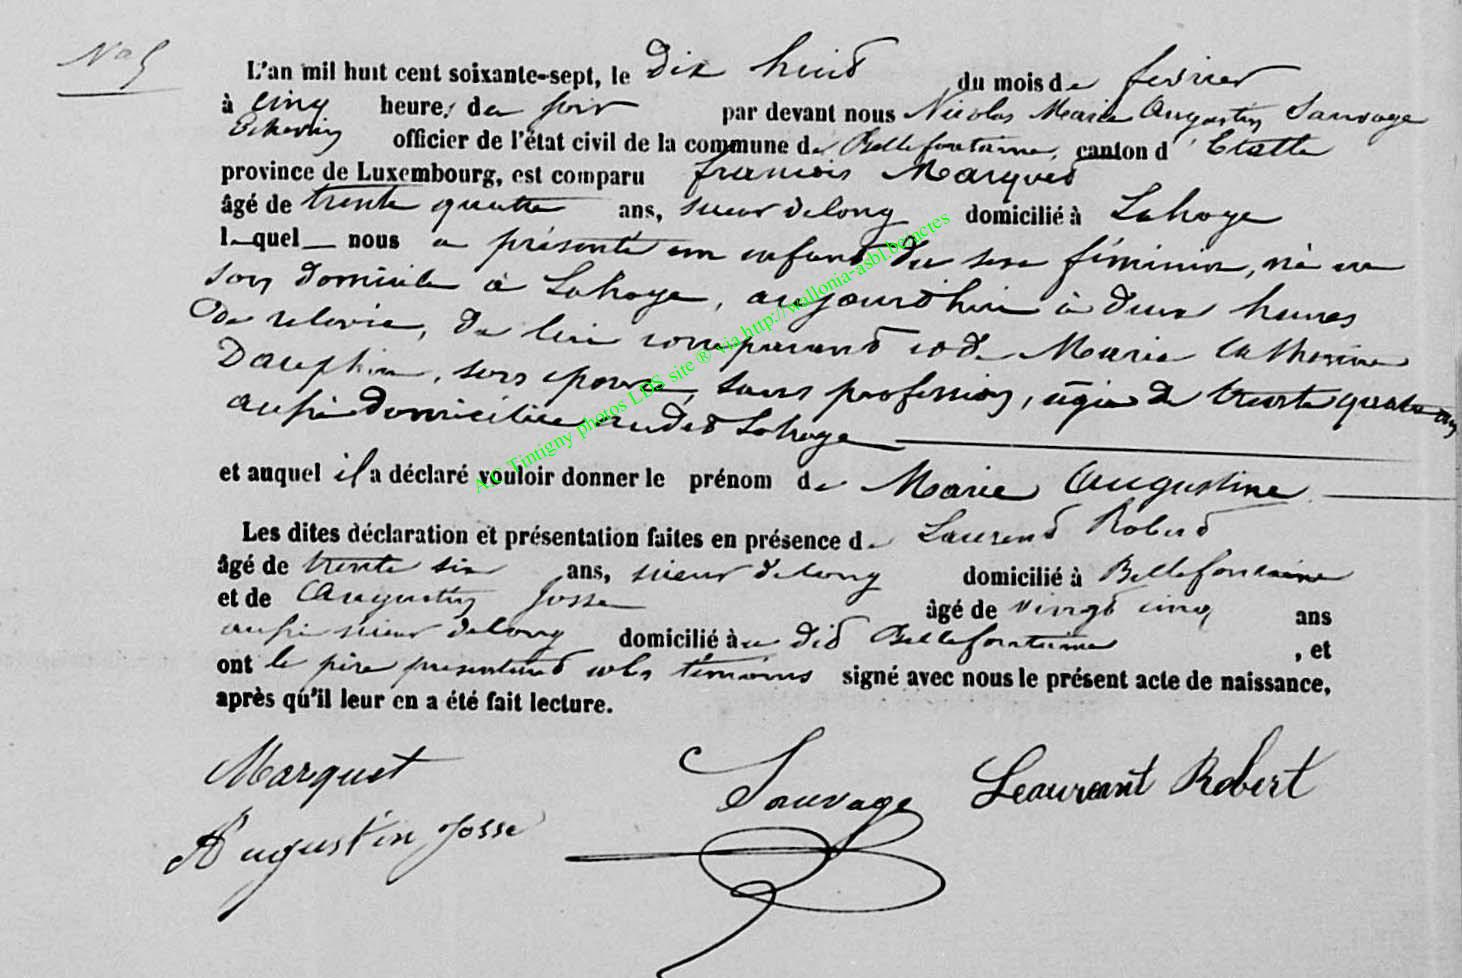 N° 5
L'an mil huit cent soixante-sept, le dix huit du mois de fevrier
à cinq heures du soir par devant nous Nicolas Marie Augustin Sauvage
Echevin officier de l'état civil de la commune de Bellefontaine, canton d'Etalle
province de Luxembourg, est comparu francois Marquet
âgé de trente quatre ans, scieur de long domicilié à Lahage
lequel nous a présenté un enfant du sexe féminin, né en
son domicile à Lahage, aujourd'hui à deux heures
de relevée, de lui comparant et de Marie Catherine
Dauphin, son epouse, sans profession, agée de trente quatre ans
aussi domiciliée audit Lahage
et auquel il a déclaré vouloir donner le prénom de Marie Augustine
Les dites déclaration et présentation faites en présence de Laurent Robert
âgé de trente six ans, scieur de long domicilié à Bellefontaine
et de Augustin Josse âgé de vingt cinq ans
aussi scieur de long domicilié au dit Bellefontaine, et
ont le père présentant et les témoins signé avec nous le présent acte de naissance,
après qu'il leur en a été fait lecture.
Marquet Sauvage Leaurant Robert
Augustin Josse
AC Tintigny photos LDS site ® via http://wallonia-asbl.be/actes